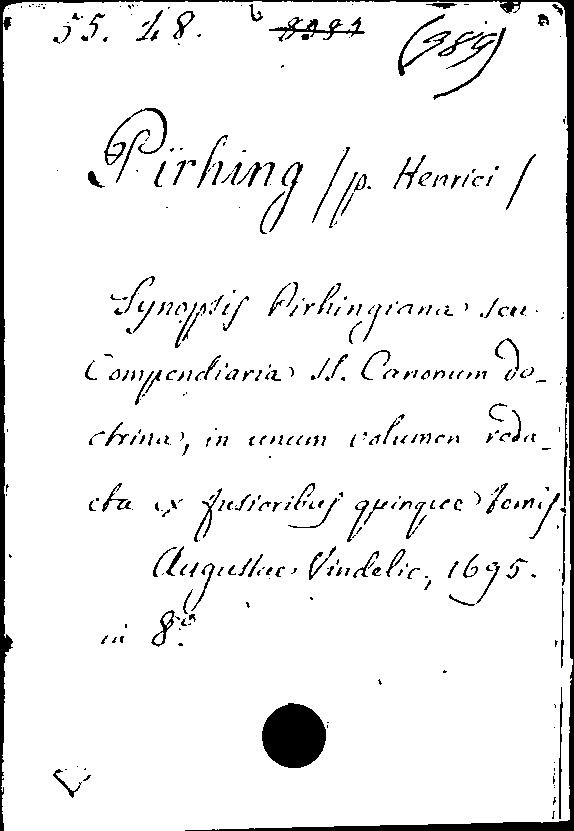 55. 48.
(989)
Pirhing / p. Henrici /
Synopsis Pirhingiana seu
Compendiaria SS. Canonum do-
ctrina, in unum volumen reda-
cta ex fusioribus quinque tomis.
Augustae Vindelic, 1695.
in 8º